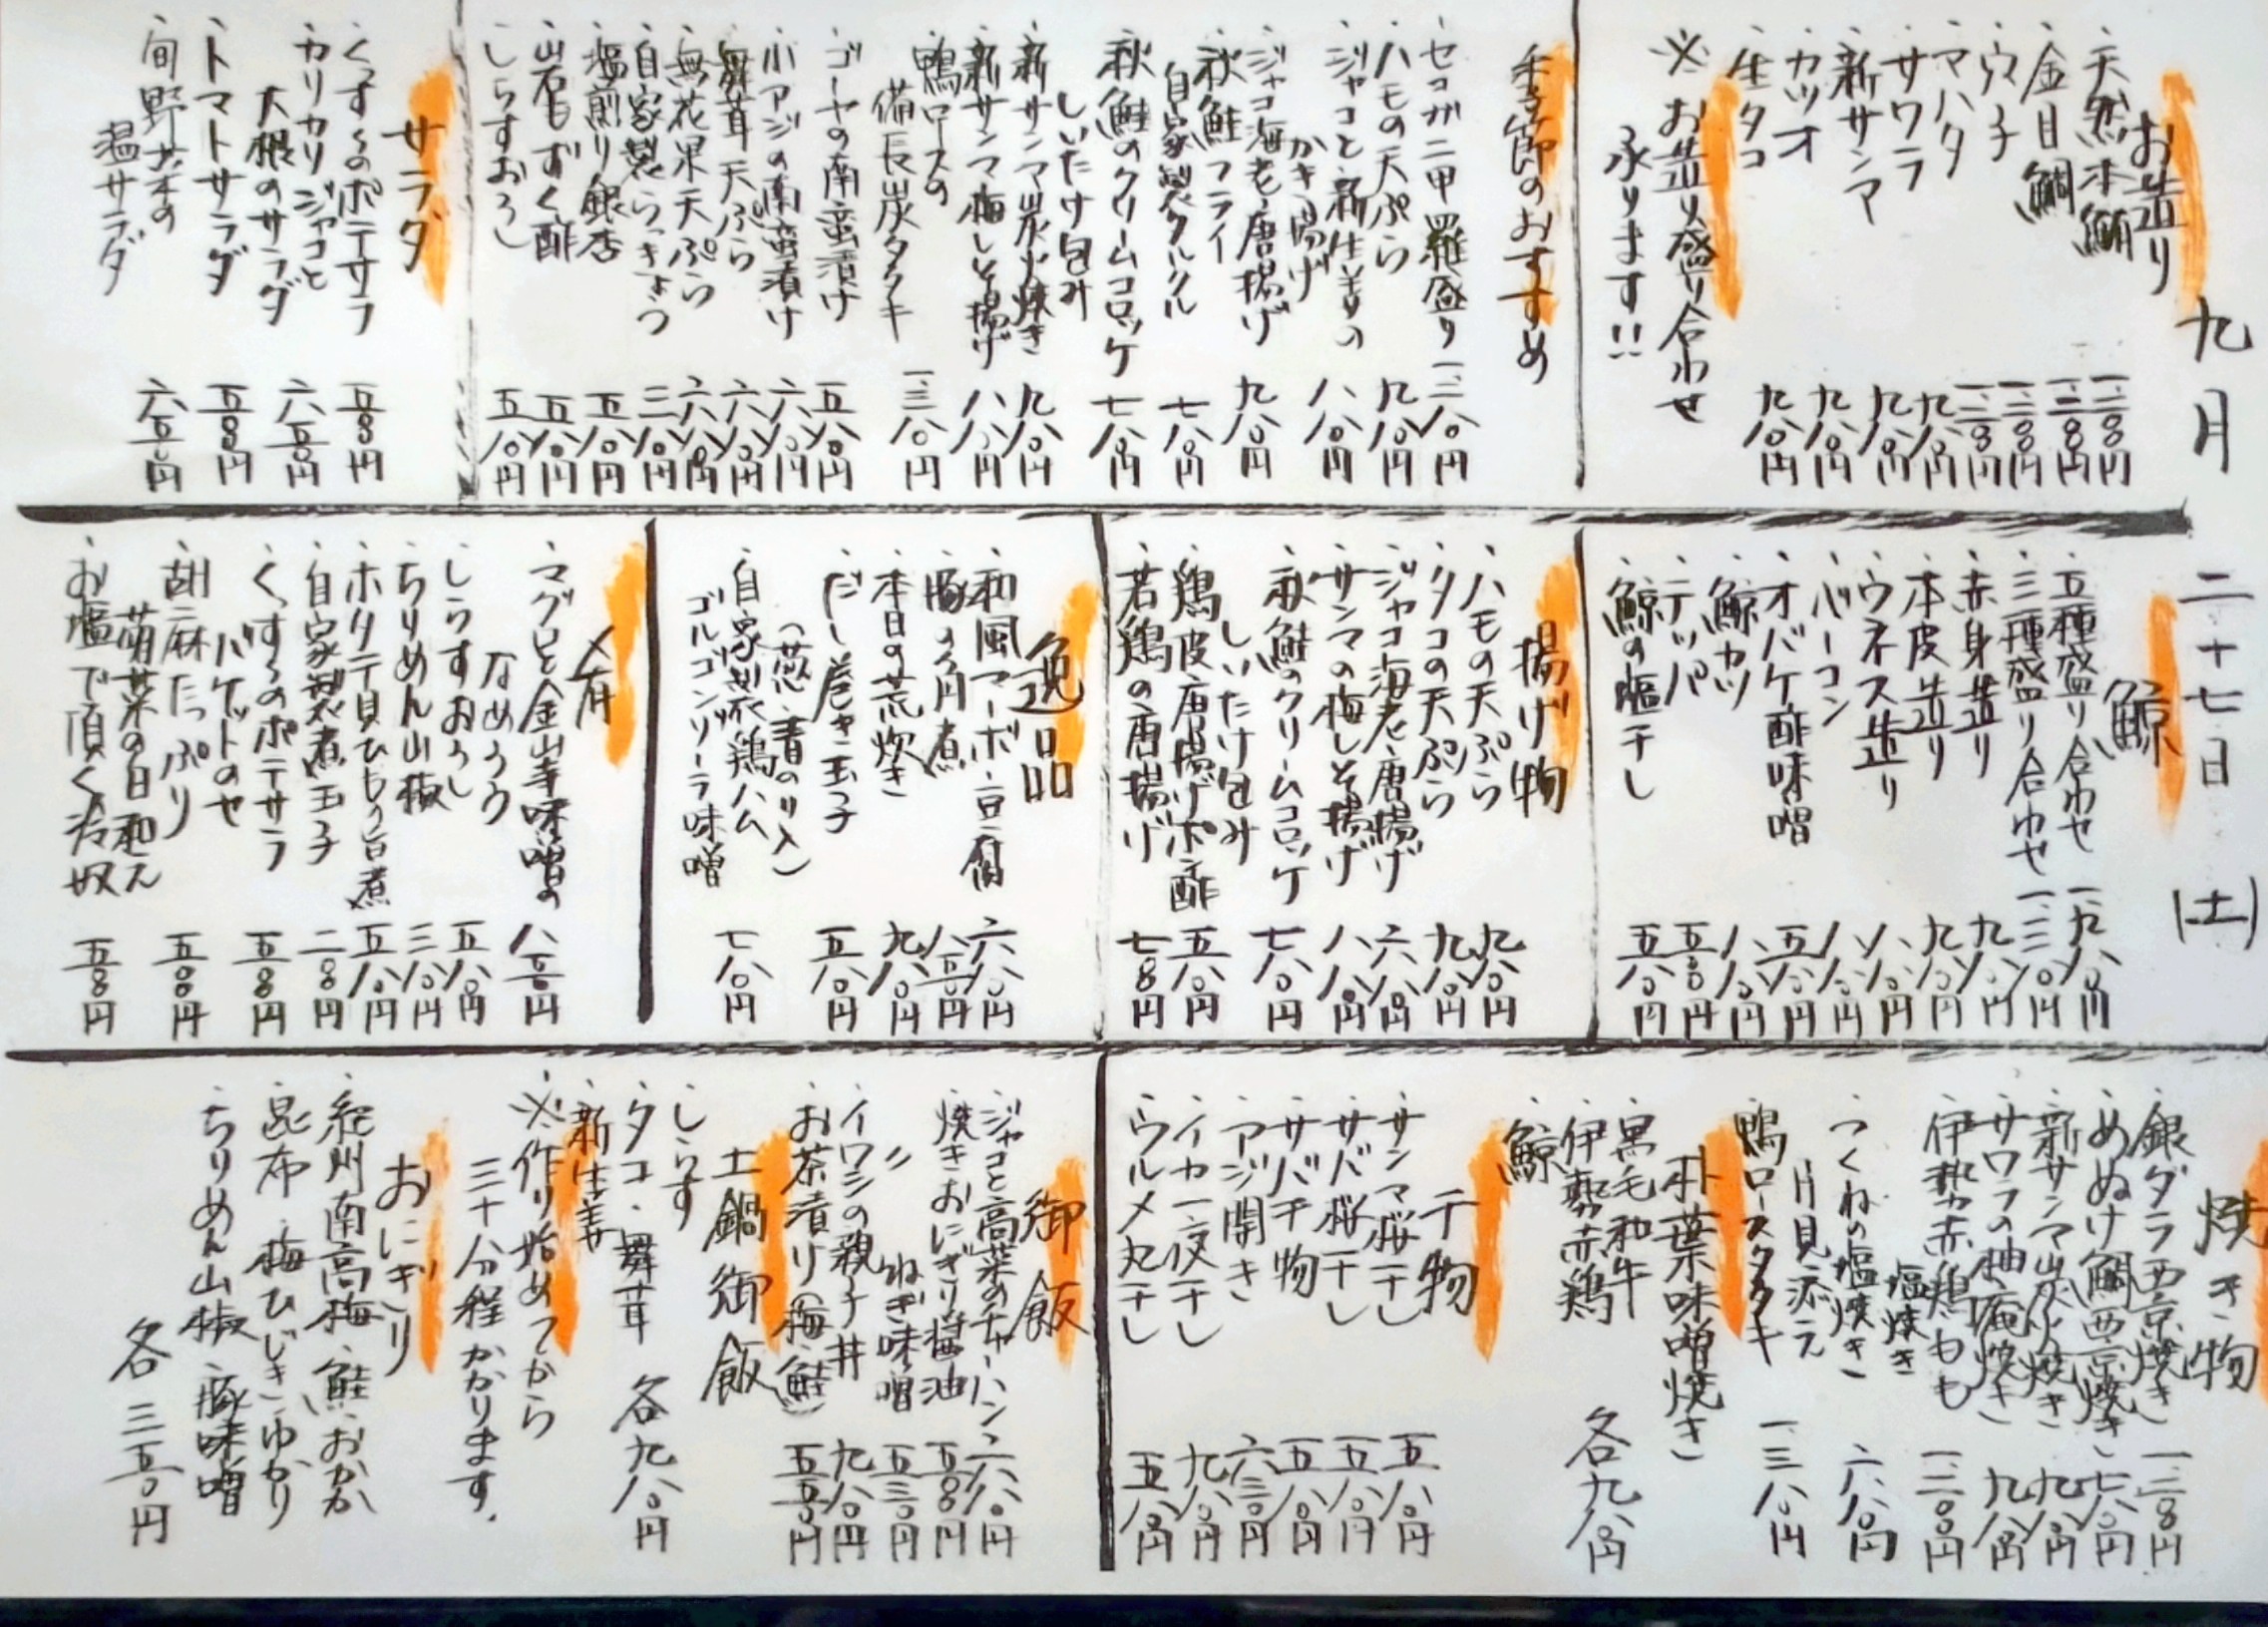 九月 二十七日 (土)
お造り
・天然本鮪 一二〇〇円
・金目鯛 一二〇〇円
・ウニ
・マハタ
・サワラ 九八〇円
・新サンマ 九八〇円
・カツオ 九八〇円
・生タコ 九八〇円
※お造り盛り合わせ
承ります!!
季節のおすすめ
・セコガニ甲羅盛り 一三八〇円
・ハモの天ぷら 九八〇円
・ジャコと新生姜の
かき揚げ 八八〇円
・ジャコ海老唐揚げ 九八〇円
・秋鮭フライ
自家製タルタル 七八〇円
・秋鮭のクリームコロッケ
しいたけ包み 七八〇円
・新サンマ炭火焼き 九八〇円
・新サンマ梅しそ揚げ 八八〇円
・鴨ロースの
備長炭タタキ 一三八〇円
・ゴーヤの南蛮漬け 五八〇円
・小アジの南蛮漬け 六八〇円
・舞茸天ぷら 六八〇円
・無花果天ぷら 六八〇円
・自家製らっきょう 三八〇円
・塩煎り銀杏 五八〇円
・岩もずく酢 五八〇円
・しらすおろし 五八〇円
サラダ
・くずし〜のポテサラ 五〇〇円
・カリカリジャコと
大根のサラダ 六五〇円
・トマトサラダ 五〇〇円
・旬野菜の
温サラダ 六五〇円
鯨
・五種盛り合わせ 一九八〇円
・三種盛り合わせ 一三八〇円
・赤身造り 九八〇円
・本皮造り 九八〇円
・ウネス造り 八八〇円
・ベーコン 八八〇円
・オバケ酢味噌 五八〇円
・鯨カツ 八八〇円
・テッパ 五〇〇円
・鯨の塩干し 五八〇円
揚げ物
・ハモの天ぷら 九八〇円
・タコの天ぷら 九八〇円
・ジャコ海老唐揚げ 六八〇円
・サンマの梅しそ揚げ 八八〇円
・秋鮭のクリームコロッケ
しいたけ包み 七八〇円
・鶏皮唐揚げポン酢 五八〇円
・若鶏の唐揚げ 七〇〇円
逸品
・和風マーボー豆腐 六八〇円
・豚の角煮 八五〇円
・本日の荒炊き 九八〇円
・だし巻き玉子
(葱・青のり入) 五八〇円
・自家製鶏ハム
ゴルゴンゾーラ味噌 七八〇円
〆肴
・マグロと金山寺味噌の
なめろう 八五〇円
・しらすおろし 五八〇円
・ちりめん山椒 三八〇円
・ホタテ貝ひもの旨煮 五八〇円
・自家製煮玉子 二〇〇円
・くずし〜のポテサラ
バゲットのせ 五〇〇円
・胡麻たっぷり
萌菜の白和え 五〇〇円
・お塩で頂く冷奴 五〇〇円
焼き物
・銀ダラ西京焼き 一二〇〇円
・めぬけ鯛西京焼き 七八〇円
・新サンマ炭火焼き 九八〇円
・サワラの柚庵焼き 九八〇円
・伊勢赤鶏もも
塩焼き 一二〇〇円
・つくねの塩焼き
月見添え 六八〇円
・鴨ロースタタキ 一三八〇円
朴葉味噌焼き
・黒毛和牛
・伊勢赤鶏
・鯨 各九八〇円
干物
・サンマ桜干し 五八〇円
・サバ桜干し 五八〇円
・サバ干物 五八〇円
・アジ開き 六三〇円
・イカ一夜干し 九八〇円
・ウルメ丸干し 五八〇円
御飯
・ジャコと高菜のチャーハン 六八〇円
・焼きおにぎり醤油 五〇〇円
・〃 ねぎ味噌 五三〇円
・イワシの親子丼 九八〇円
・お茶漬け(梅・鮭) 五五〇円
土鍋御飯
・しらす
・タコ・舞茸 各九八〇円
・新生姜
※作り始めてから
三十分程かかります。
おにぎり
・紀州南高梅・鮭・おかか
・昆布・梅ひじき・ゆかり
・ちりめん山椒・豚味噌
各三五〇円